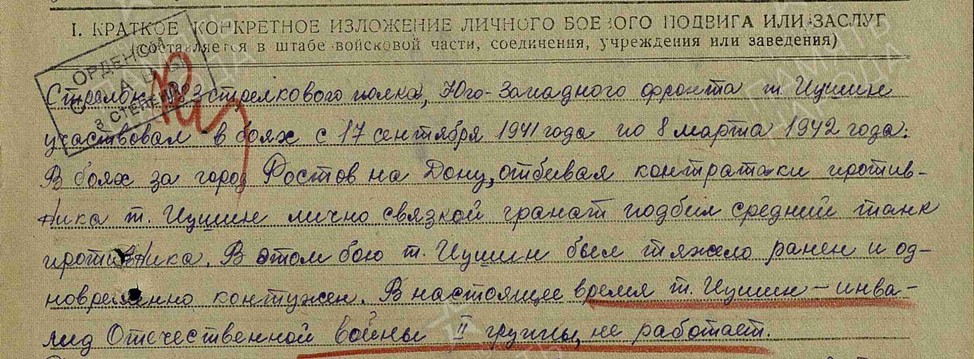 I. КРАТКОЕ КОНКРЕТНОЕ ИЗЛОЖЕНИЕ ЛИЧНОГО БОЕВОГО ПОДВИГА ИЛИ ЗАСЛУГ
(составляется в штабе войсковой части, соединения, учреждения или заведения)
ОРДЕНОМ
3 СТЕПЕНИ
Стрелок стрелкового полка, Юго-Западного фронта т. Ицшин
участвовал в боях с 17 сентября 1941 года по 8 марта 1942 года.
В боях за город Ростов на Дону, отбивая контратаки против-
ника т. Ицшин лично связкой гранат подбил средний танк
противника. В этом бою т. Ицшин был тяжело ранен и од-
новременно контужен. В настоящее время т. Ицшин – инва-
лид Отечественной войны II группы, не работает.